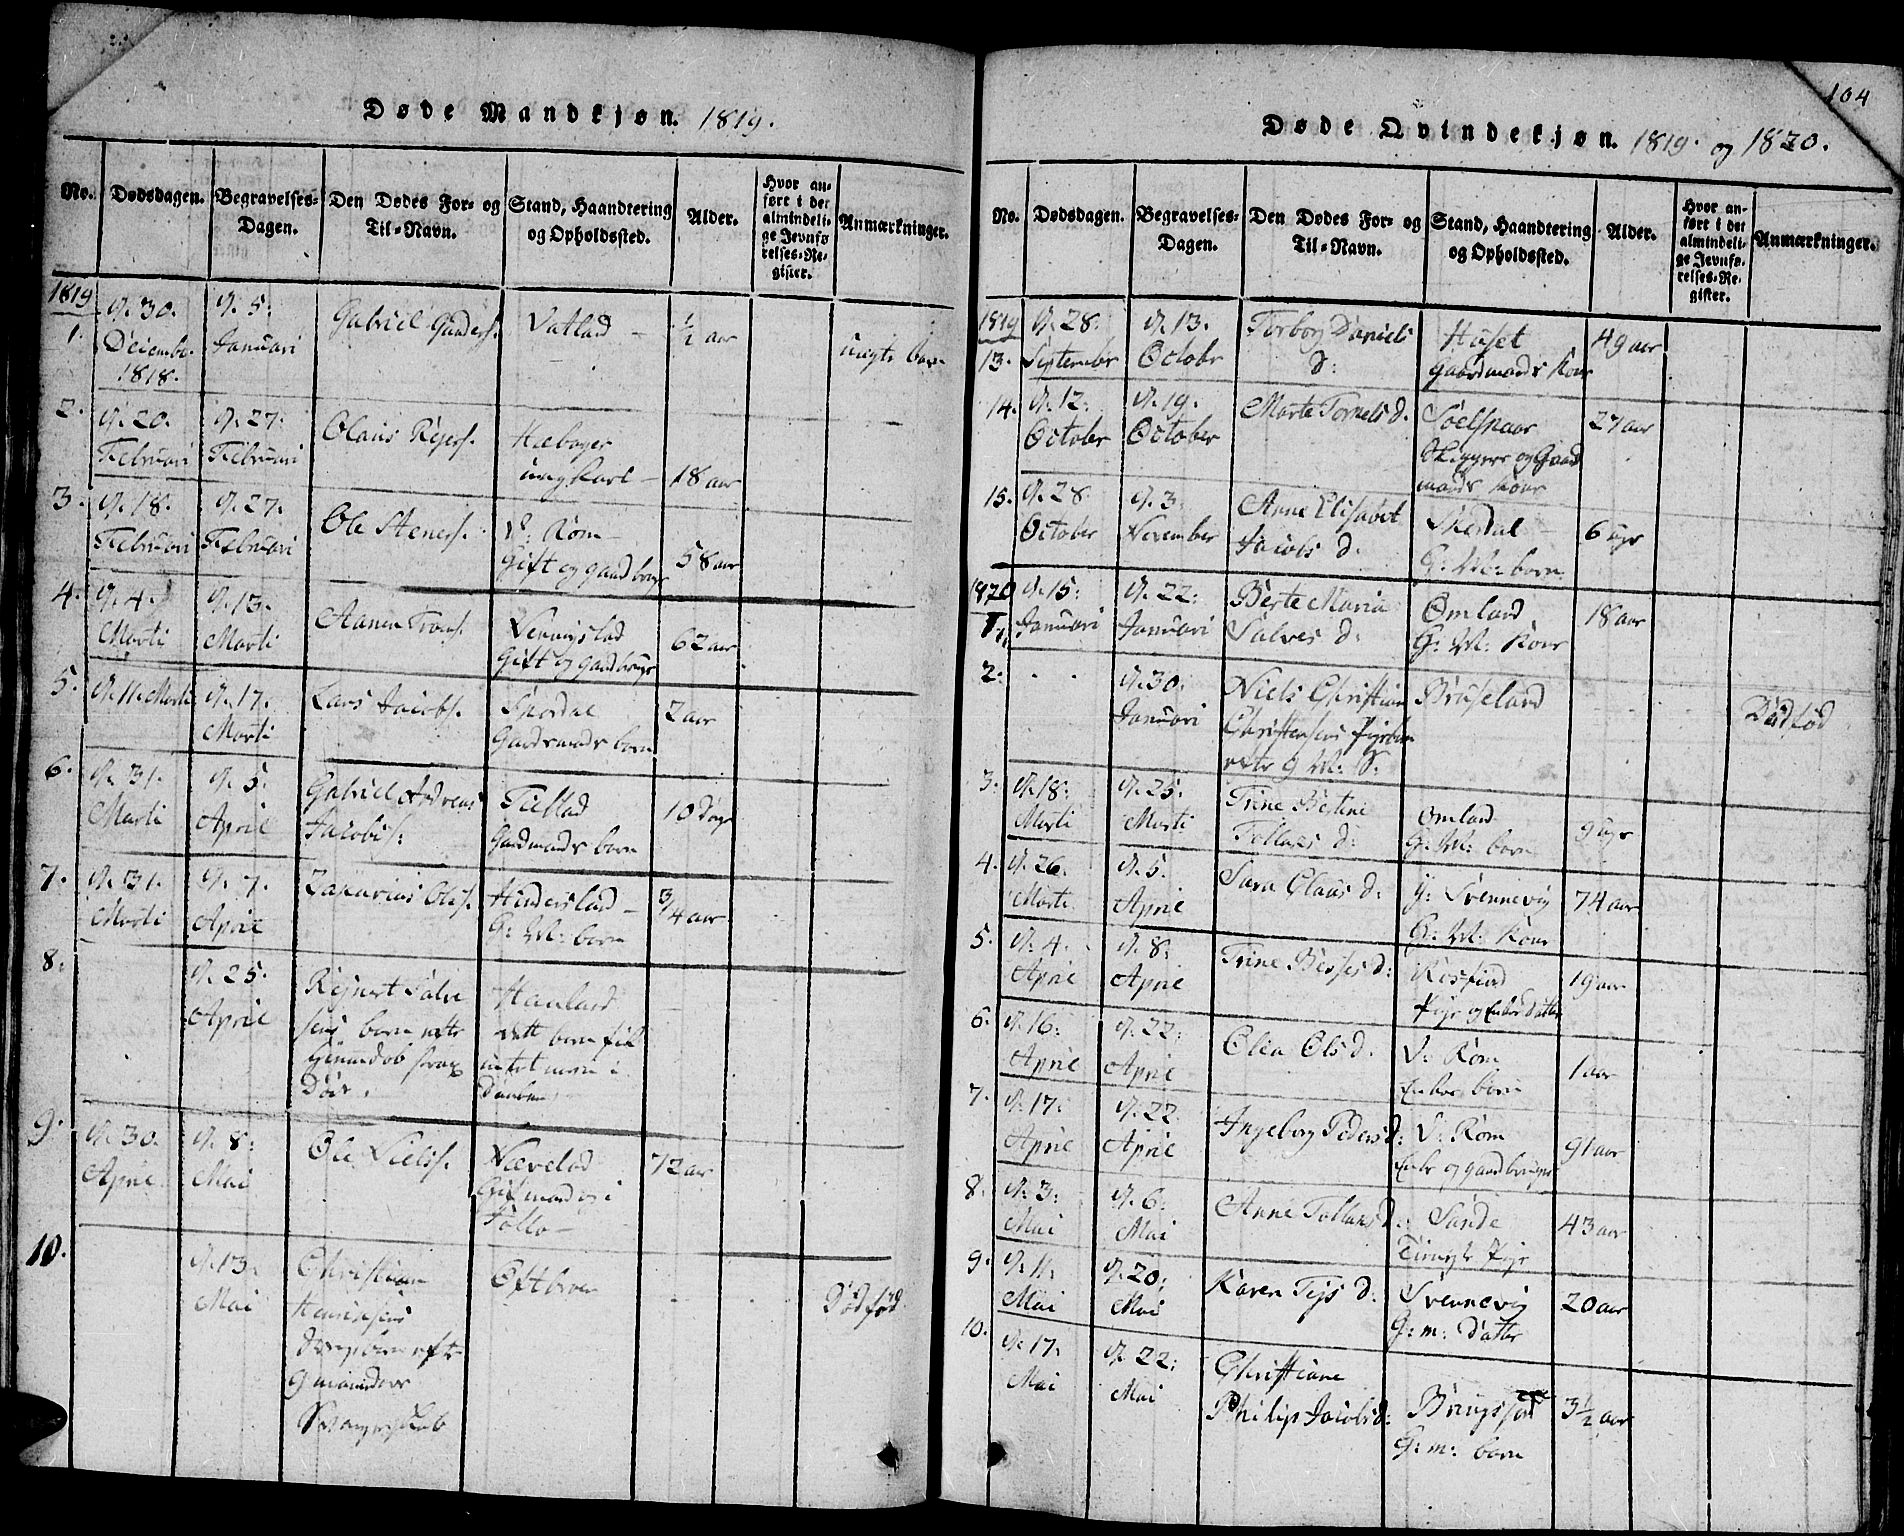 Døde Mandkjøn. 1819.
No.
Dødsdagen.
Begravelses-
Dagen.
Den Dødes For- og
Til-Navn.
Stand, Haandtering
og Opholdssted.
Alder.
Hvor an-
ført i det
almindeli-
ge Jevnfø
relses-Re-
gister.
Anmærkninger.
1819
1.
d. 30.
Decembr.
1818.
d. 5.
Januari
Gabriel
Vatlad
½ aar
uægte barn
2.
d. 20.
Februari
d. 27.
Februari
Olaus Rejers.
Hæbager
ungkarl
18 aar
3.
d. 18.
Februari
d. 27.
Februari
Ole Steners.
V: Røm
Gift og gaardbruger
58 aar
4.
d. 4.
Marti
d. 13.
Marti
Aanen Trons.
Gift og gaardbruger
62 aar
5.
d. 11. Marti
d. 17.
Marti
Lars Jacobs.
Spordal
Gardmands born
2 aar
6.
d. 31.
Marti
d. 5.
April
Gabriel Andreas
Jacobs.
Gardmands born
10 Dage
7.
d. 31.
Marti
d. 7.
April
Zakarias Oles.
G: M: born
3/4 aar
8.
d. 25.
April
Rejnert Salve
sens born efter
hjemmedob strax
Døde.
Haulad
intet navn i
Daaben
9.
d. 30.
April
d. 8:
Mai
Ole
Nævelad
Gift mand og i
Follo
72 aar
10.
d. 13.
Mai
Christian
Svangerskab
Dødfød
104
Døde Qvindekjøn. 1819. og 1820.
No.
Dødsdagen.
Begravelses-
Dagen.
Den Dødes For- og
Til-Navn.
Stand, Haandtering
og Opholdssted.
Alder.
Hvor an-
ført i det
almindeli-
ge Jevnfø-
relses-Re-
gister.
Anmærkninger.
1819
13.
d. 28.
Septembr
d. 13.
Octobr
Torborg Daniels
d:
Huset
gaardmands Kone
49 aar
14.
d. 12:
October
d. 19.
October
Marte Tornels d.
mands Kone
27 aar
15.
d. 28
October
d. 3:
November
Anne Elisabet
Jacobs d.
G: M: born
6 Uger
1820
1.
d. 15:
Januari
d. 22:
Januari
Berte Maria
Salves d:
Omland
G: M: Kone
18 aar
2:
d. 30:
Januari
Niels Christian
Christensens Pigebarn
Bruseland
Dødfød
3.
d. 18:
Marti
d. 25.
Marti
Trine Bertine
Tollags d:
Omland
G: M: born
9 Uger
4.
d. 26.
Marti
d. 5.
April
Sara Claus d.
Y: Svennevig
G: M: Kone
74 aar
5.
d. 4.
April
d. 8:
April
Trine
Rosfiord
Pige og Enkes datter
19 aar
6.
d. 16:
April
d. 22:
April
Olea Ols d.
V: Røm
Enkes born
1 aar
7.
d. 17:
April
d. 22.
April
Ingeborg Peders d:
V: Røm
Enke og gaardbruger
91 aar
8.
d. 3:
Mai
d. 6:
Mai
Anne Tollags d:
Sande
Tieneste Pige
43 aar
9.
d. 11.
Mai
d. 20:
Mai
Karen Tejs d:
Svennevig
G: m: Datter
20 aar
10.
d. 17:
Mai
d. 22:
Mai
Christiane
Philip Jacobs d:
G: m: born
3½ aar